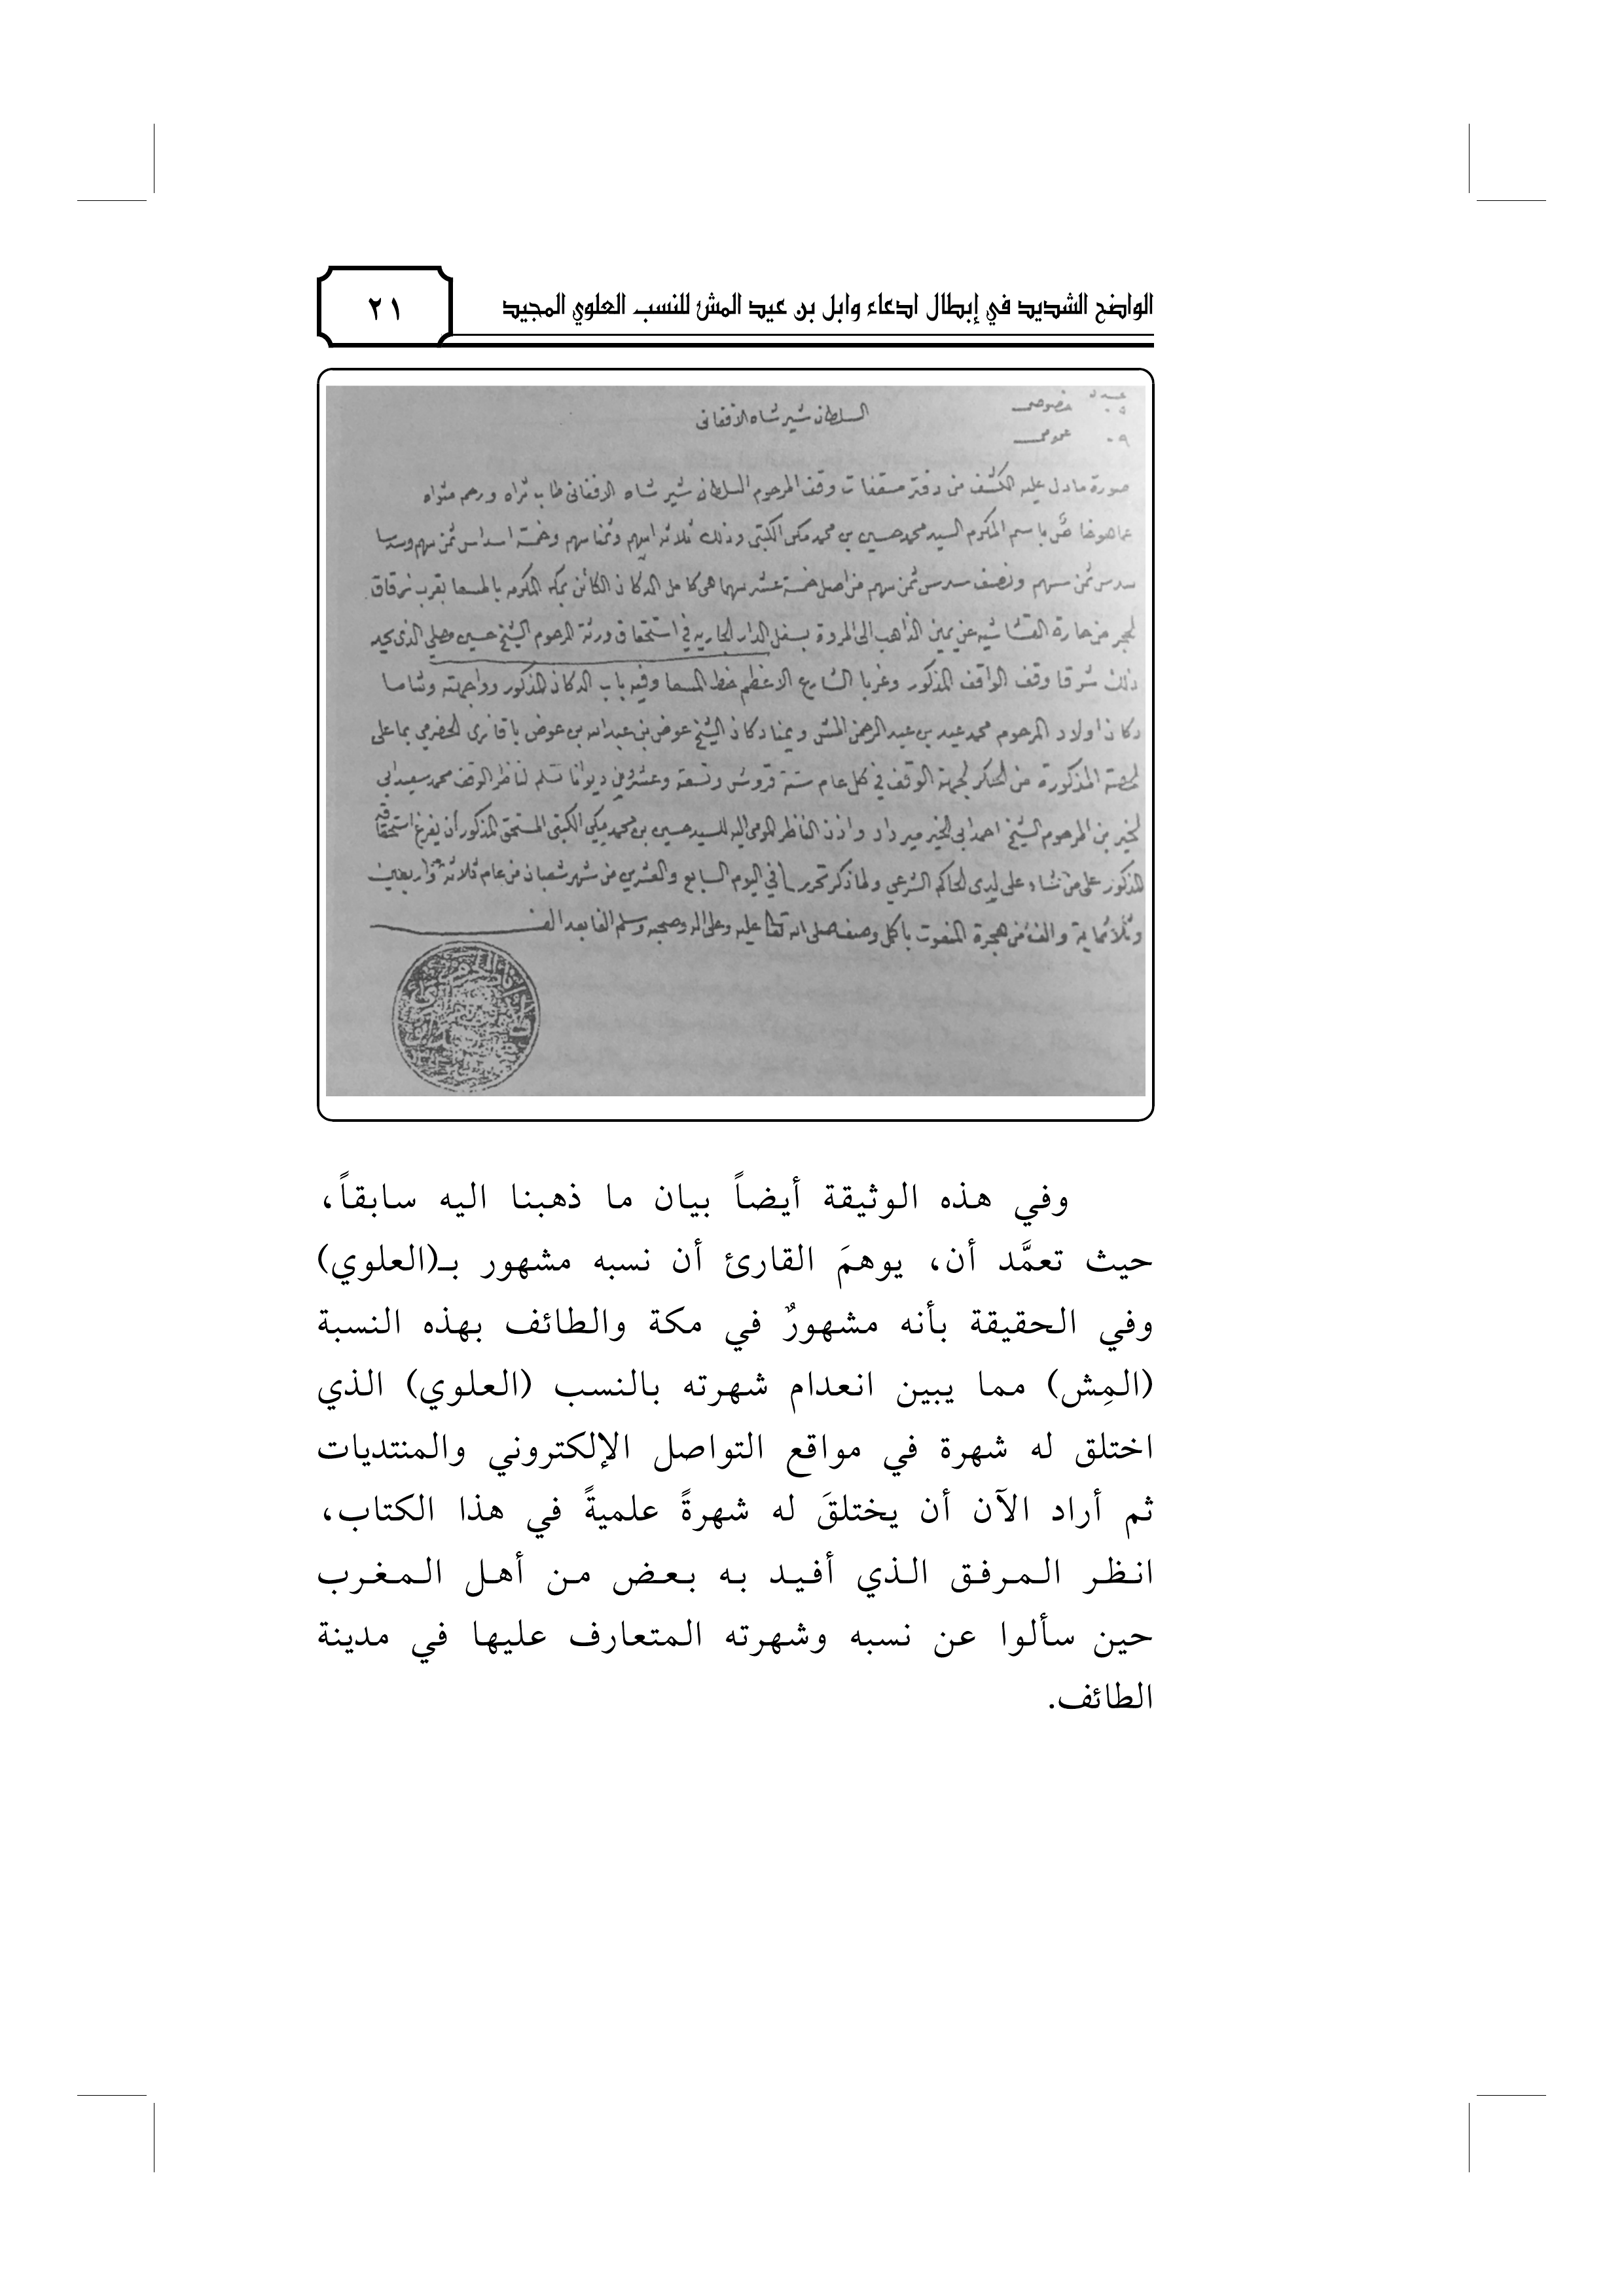 الواضح الشديد في إبطال ادعاء وابل بن عيد المش للنسب العلوي المجيد
٢١
خصوصى
السلطان شير شاه الافغانى
٩٠ عمومى
صورة مادل عليه الكشف من دفتر مسقفات وقف المرحوم السلطان شير شاه الافغانى طاب ثراه ورحم مثواه
باسم المكرم السيد محمد حسين بن محمد مكى الكتبى وذلك ثلاثة اسهم وثمنا سهم وخمسة اسداس ثمن سهم
سدس ثمن سهم ونصف سدس ثمن سهم من اصل خمسة عشر سهما هى كامل الدكان الكائن بمكة المكرمه بالمسعا بقرب زقاق
لحجر من حارة القشاشيه عن يمين الذاهب الى المروة بسفل الدار الجاريه في استحقاق ورثة المرحوم الشيخ حسين الذى يحد
ذلك شرقا وقف الواقف المذكور وغربا الشارع الاعظم خط المسعا وفيه باب الدكان المذكور وواجهته وشاما
دكان اولاد المرحوم محمد عيد بن عبد الرحمن المش ويمنا دكان الشيخ عوض بن عبد الله بن عوض الحضرمي بما على
لحصة المذكورة من الحكر لجهة الوقف في كل عام ستة قروش وتسعة وعشرين ديوانا تسلم لناظر الوقف محمد سعيد ابى
لخير بن المرحوم الشيخ احمد ابى الخير ميرداد واذن الناظر المومى اليه للسيد حسين بن محمد مكي الكتبى المستحق المذكور أن يفرغ استحقاقه
المذكور على من شاء على يدى الحاكم الشرعي ولما ذكر تحرر في اليوم السابع والعشرين من شهر شعبان من عام ثلاثة واربعين
وثلاثمائة والف من هجرة المنعوت باكمل وصف صلى الله تعالى عليه وعلى اله وصحبه وسلم الفا بعد الف
وفي هذه الوثيقة أيضاً بيان ما ذهبنا اليه سابقاً،
حيث تعمَّد أن، يوهمَ القارئ أن نسبه مشهور بـ(العلوي)
وفي الحقيقة بأنه مشهورٌ في مكة والطائف بهذه النسبة
(المِش) مما يبين انعدام شهرته بالنسب (العلوي) الذي
اختلق له شهرة في مواقع التواصل الإلكتروني والمنتديات
ثم أراد الآن أن يختلقَ له شهرةً علميةً في هذا الكتاب،
انظر المرفق الذي أفيد به بعض من أهل المغرب
حين سألوا عن نسبه وشهرته المتعارف عليها في مدينة
الطائف.